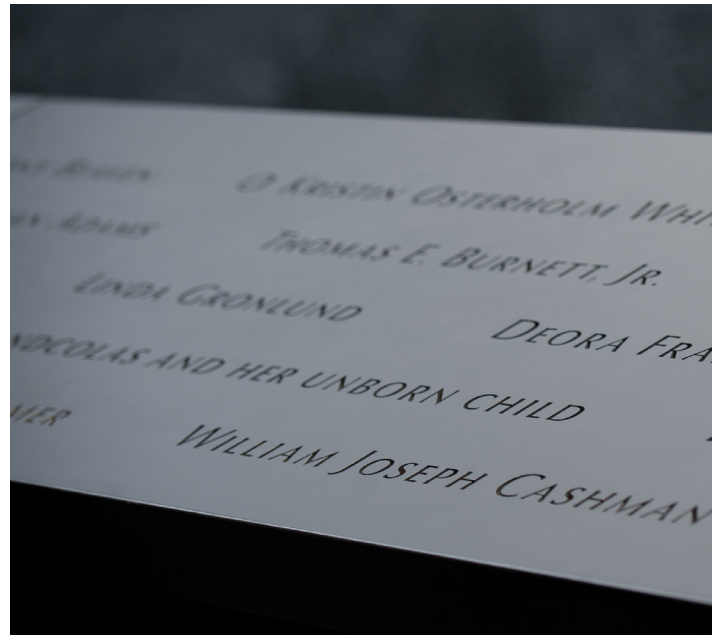 BEAVEN KRISTIN OSTERHOLM WHI
AN ADAMS THOMAS E. BURNETT, JR.
LINDA GRONLUND DEORA FRA
NDCOLAS AND HER UNBORN CHILD
WILLIAM JOSEPH CASHMAN